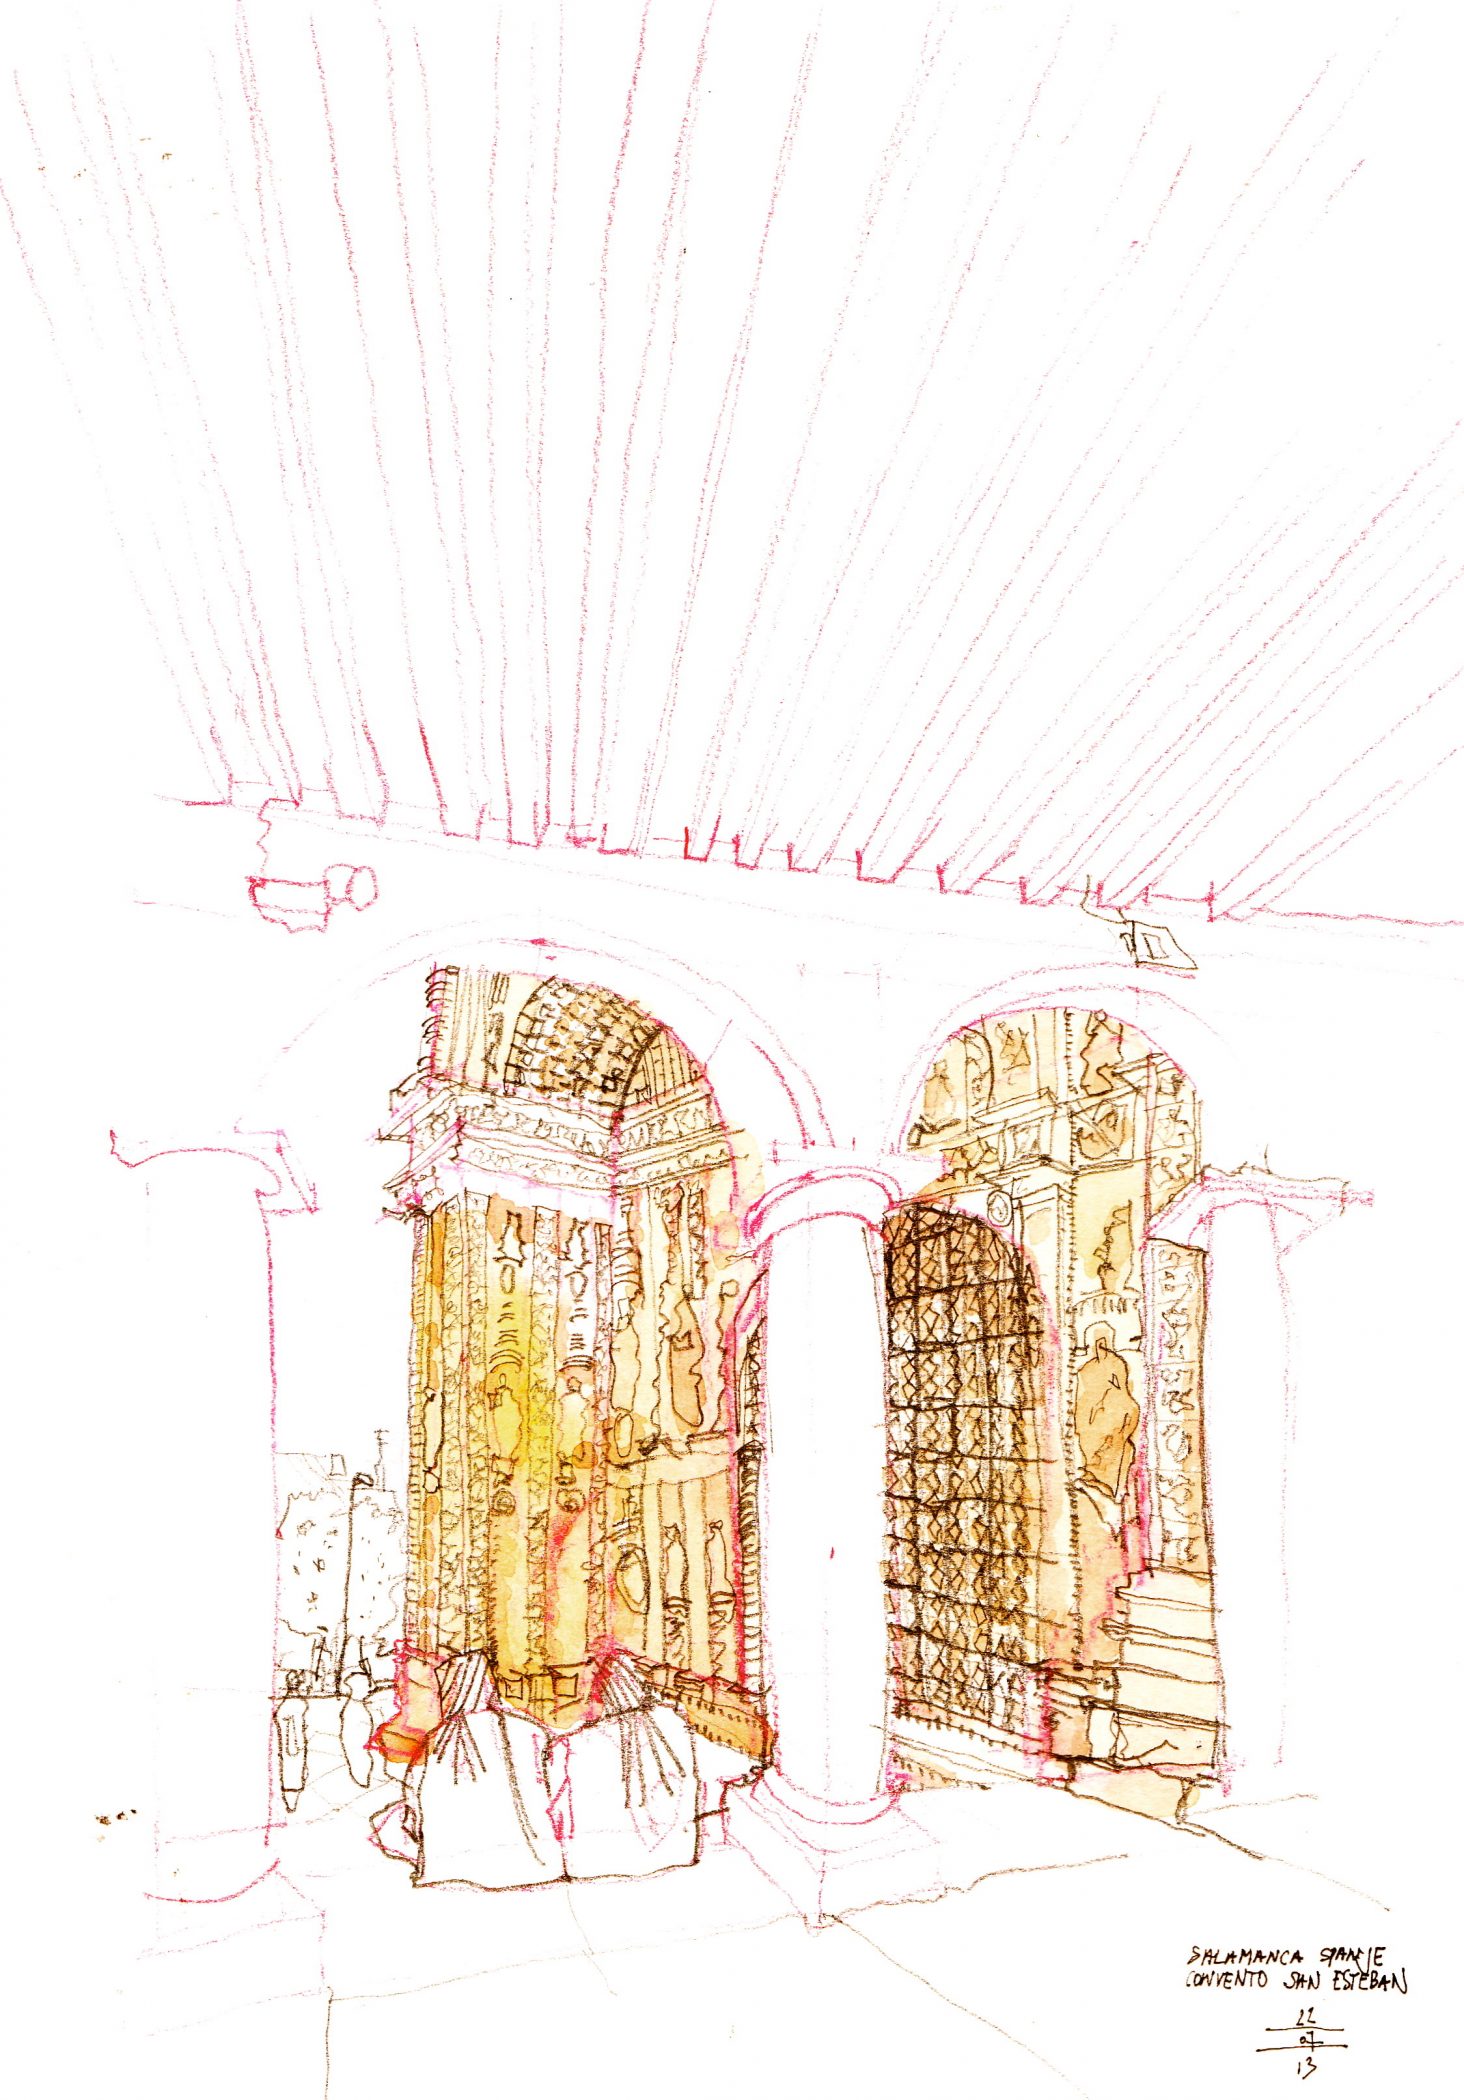 SALAMANCA SPANJE
CONVENTO SAN ESTEBAN
22
07
13